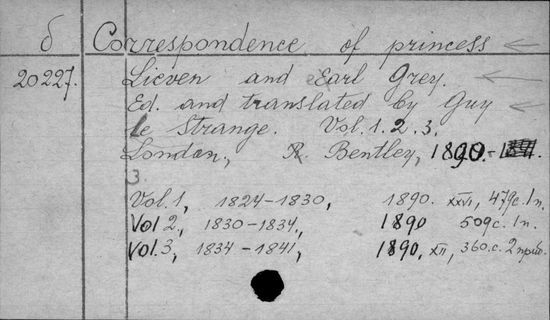 б Correspondence of princess
20227. Lieven and Earl Grey.
Ed. and translated by Guy
le Strange. Vol. 1. 2. 3.
London, R. Bentley, 1890.-
3
Vol. 1, 1824-1830, 1890. XXVI, 479c. 1п.
Vol 2, 1830-1834, 1890 509c. 1п.
Vol. 3, 1834-1841, 1890, XII, 360.c. 2